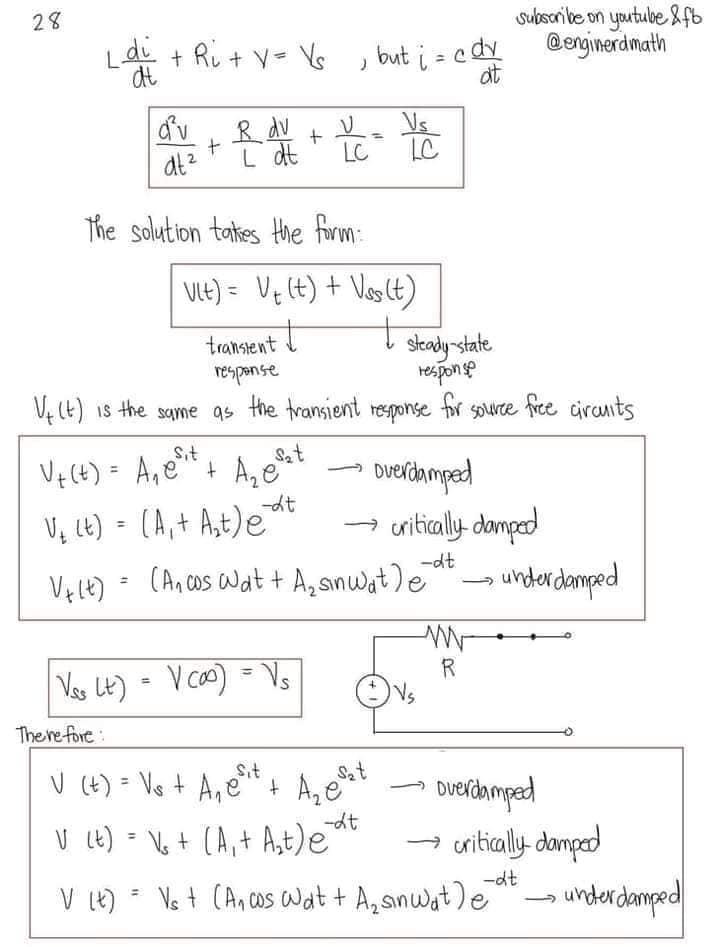 28
subscribe on youtube & fb
@enginerdmath
L di/dt + Ri + V = Vs , but i = c dv/dt
d²v/dt² + R/L dv/dt + V/LC = Vs/LC
The solution takes the form:
V(t) = Vt(t) + Vss(t)
transient response
steady-state response
Vt(t) is the same as the transient response for source free circuits
Vt(t) = A₁e^s₁t + A₂e^s₂t → overdamped
Vt(t) = (A₁ + A₂t)e^-αt → critically-damped
Vt(t) = (A₁ cos ωdt + A₂ sin ωdt)e^-αt → underdamped
R
+
-
Vs
Vss(t) = V(∞) = Vs
Therefore:
V(t) = Vs + A₁e^s₁t + A₂e^s₂t → overdamped
V(t) = Vs + (A₁ + A₂t)e^-αt → critically-damped
V(t) = Vs + (A₁ cos ωdt + A₂ sin ωdt)e^-αt → underdamped